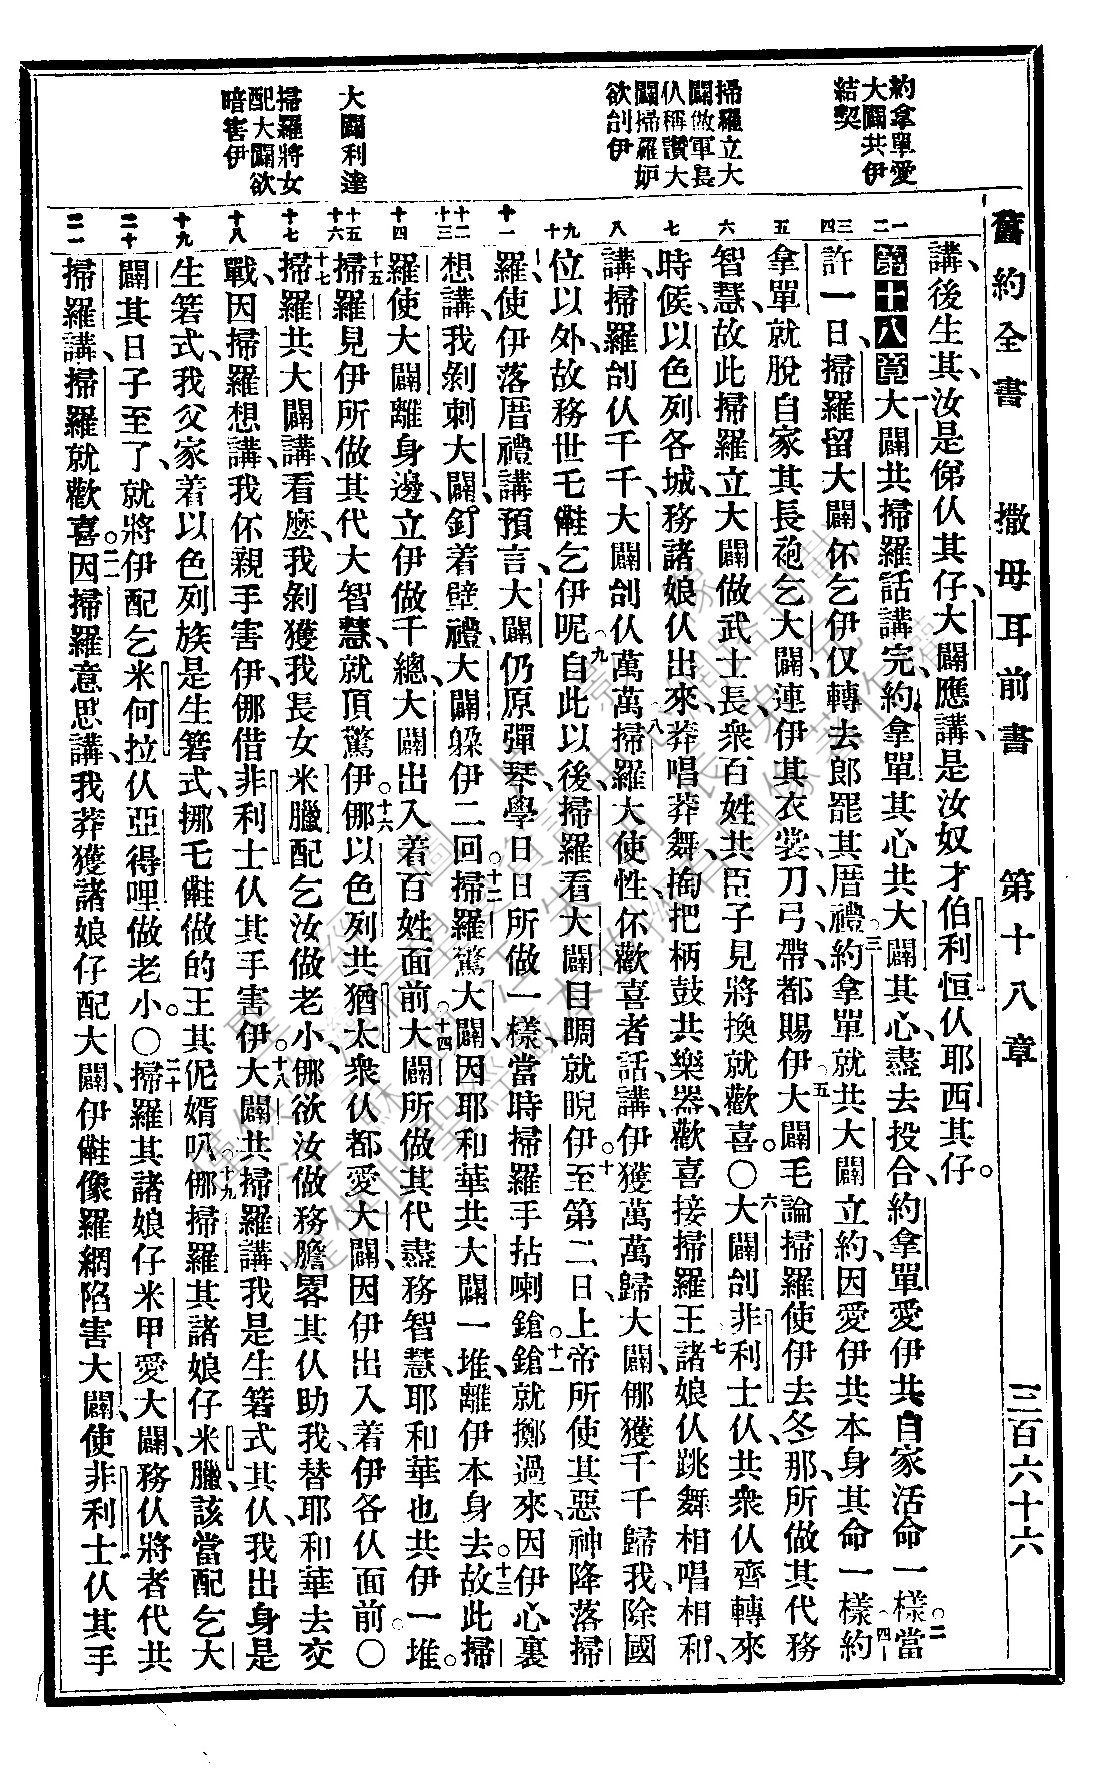 舊約全書 撒母耳前書 第十八章 三百六十六
約拿單愛
大闢共伊
結契
掃羅立大
闢做軍長
仈稱讚大
闢掃羅妒
欲刣伊
大闢利達
掃羅將女
配大闢欲
暗害伊
講、後生其、汝是俤仈其仔、大闢應講、是汝奴才伯利恒仈耶西其仔。
第十八章 一大闢共掃羅話講完、約拿單其心共大闢其心盡去投合、約拿單愛伊共自家活命一樣。二當
許一日掃羅留大闢、伓乞伊仅轉去郎罷其厝禮、三約拿單就共大闢立約、因愛伊共本身其命一樣。四約
拿單就脫自家其長袍乞大闢、連伊其衣裳、刀弓、帶、都賜伊。五大闢毛論掃羅使伊去冬那、所做其代務
智慧、故此掃羅立大闢做武士長、衆百姓共臣子見將換就歡喜。〇六大闢刣非利士仈、共衆仈齊轉來
時候、以色列各城、務諸娘仈出來、莽唱莽舞、掏把柄鼓共樂器、歡喜接掃羅王、七諸娘仈跳舞相唱相和、
講、掃羅刣仈千千、大闢刣仈萬萬、八掃羅大使性、伓歡喜者話、講、伊獲萬萬歸大闢、㑚獲千千歸我、除國
位以外、故務世乇䧹乞伊呢、九自此以後、掃羅看大闢、目瞯就睨伊。十至第二日、上帝所使其惡神降落掃
羅、使伊落厝禮講預言、大闢仍原彈琴、學日日所做一樣、當時掃羅手拈喇鎗。十一鎗就擲過來、因伊心裏
想講、我剝刺大闢、釘着壁禮、大闢躲伊二回。十二掃羅驚大闢、因耶和華共大闢一堆、離伊本身去。十三故此掃
羅使大闢離身邊、立伊做千總、大闢出入着百姓面前。十四大闢所做其代、盡務智慧、耶和華也共伊一堆。
十五掃羅見伊所做其代大智慧、就頂驚伊。十六㑚以色列共猶太衆仈都愛大闢、因伊出入着伊各仈面前。〇
十七掃羅共大闢講、看麼、我剝獲我長女米臘配乞汝做老小、㑚欲汝做務膽畧其仈助我、替耶和華去交
戰、因掃羅想講、我伓親手害伊、㑚借非利士仈其手害伊。十八大闢共掃羅講、我是生箬式其仈、我出身是
生箬式、我父家着以色列族是生箬式、挪乇䧹做的王其伲婿叭。十九㑚掃羅其諸娘仔米臘、該當配乞大
闢、其日子至了、就將伊配乞米何拉仈亞得哩做老小。〇二十掃羅其諸娘仔米甲愛大闢、務仈將者代共
掃羅講、掃羅就歡喜。二一因掃羅意思講、我莽獲諸娘仔配大闢、伊䧹像羅網陷害大闢、使非利士仈其手